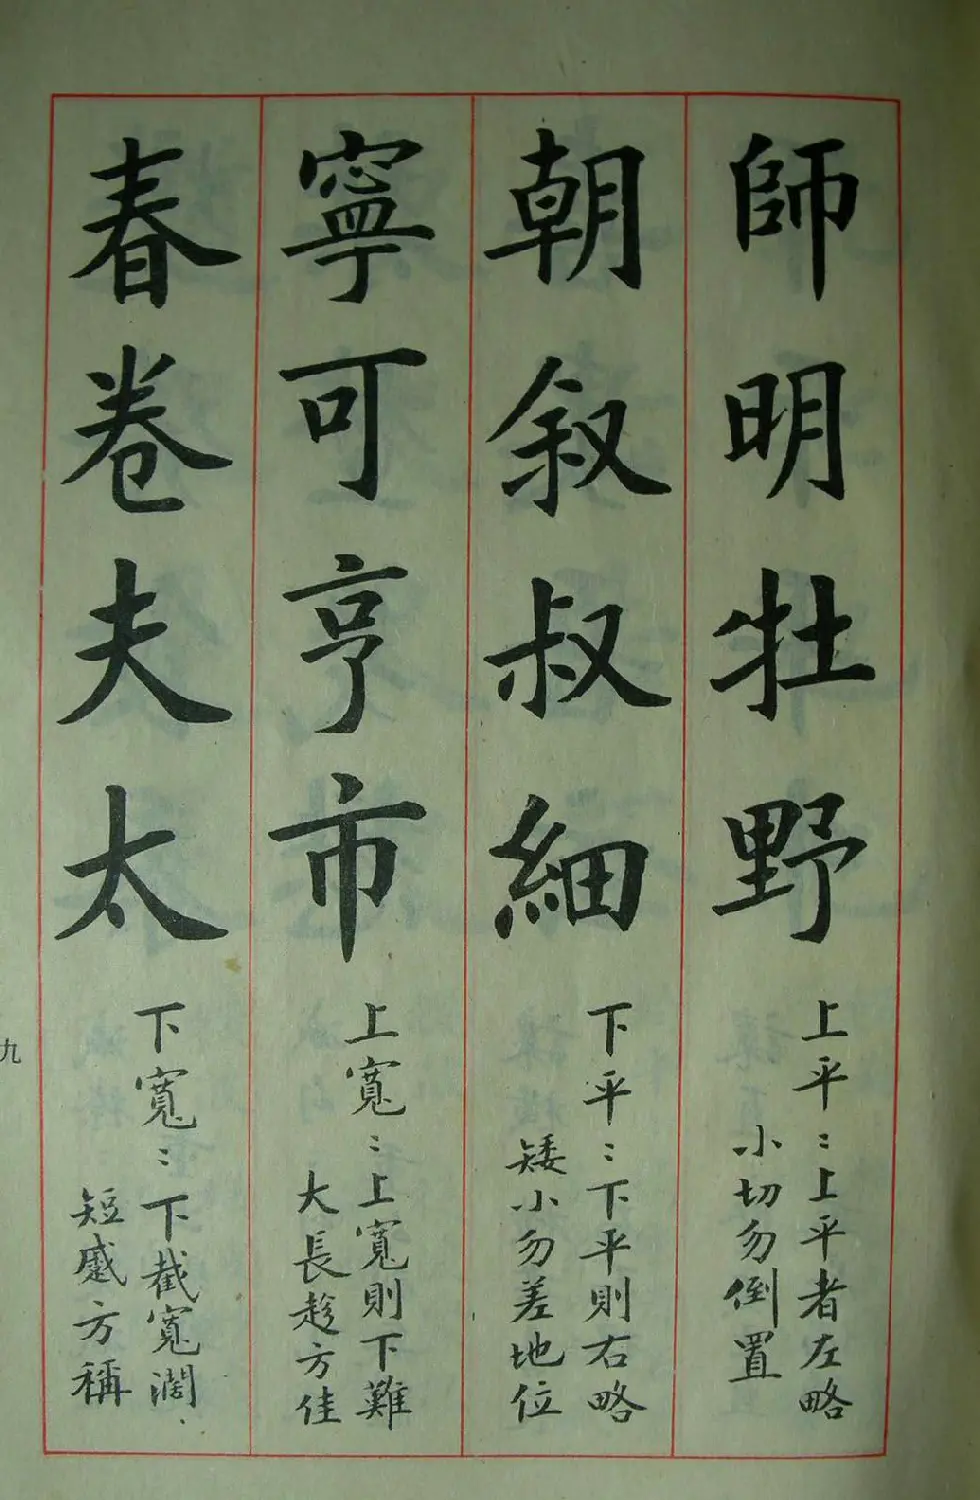 師明牡野
上平：上平者左略
小切勿倒置
朝叙叔細
下平：下平則右略
矮小勿差地位
寧可亨市
上寬：上寬則下難
大長趁方佳
春卷夫太
下寬：下截寬濶、
短蹙方稱
九